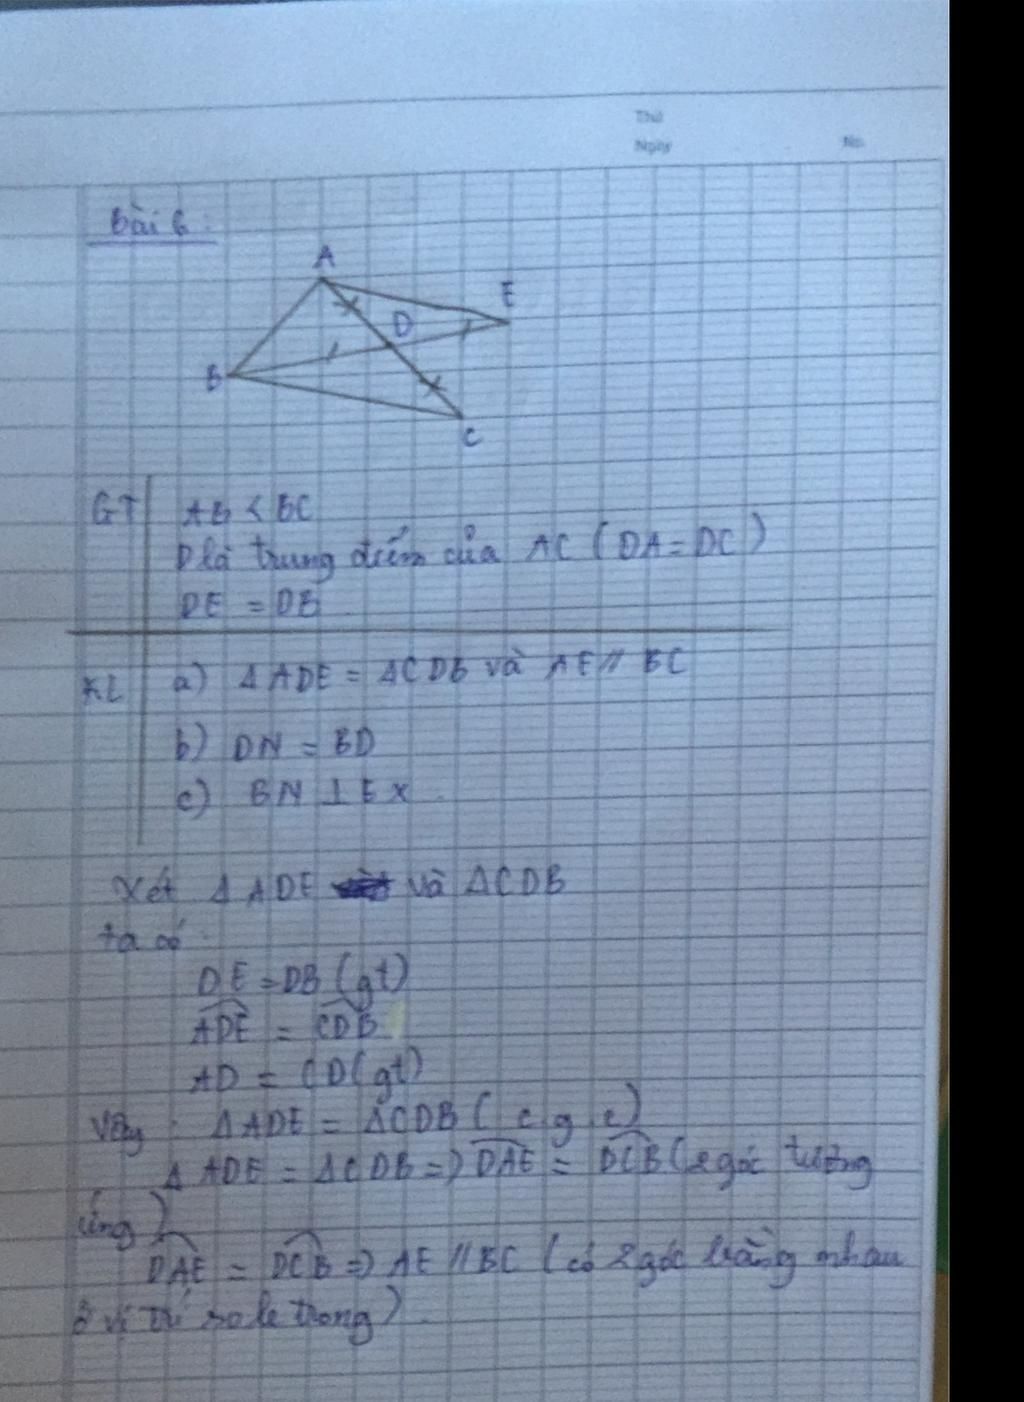 Thứ
Ngày
No.
Bài 6:
A
E
D
B
C
GT
AB < BC
D là trung điểm của AC (DA = DC)
DE = DB
KL
a) ΔADE = ΔCDB và AE // BC
b) DN = BD
c) BN ⊥ Ex
Xét ΔADE và ΔCDB
ta có:
DE = DB (gt)
ADE = CDB
AD = CD (gt)
Vậy: ΔADE = ΔCDB (c.g.c)
ΔADE = ΔCDB => DAE = DCB (2 góc tương
ứng)
DAE = DCB => AE // BC (có 2 góc bằng nhau
ở vị trí so le trong).